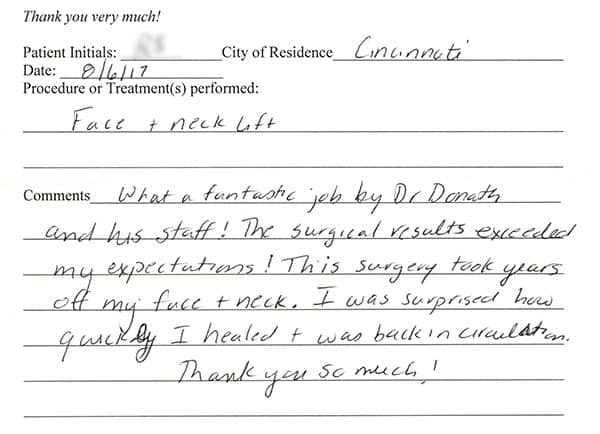 Thank you very much!
Patient Initials: City of Residence Cincinnati
Date: 8/6/17
Procedure or Treatment(s) performed:
Face + neck lift
Comments What a fantastic job by Dr Donath
and his staff! The surgical results exceeded
my expectations! This surgery took years
off my face + neck. I was surprised how
quickly I healed + was back in circulation.
Thank you so much!